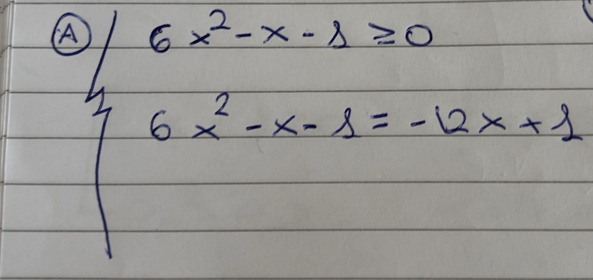 Ⓐ 6x² - x - 1 ≥ 0
6x² - x - 1 = -12x + 1